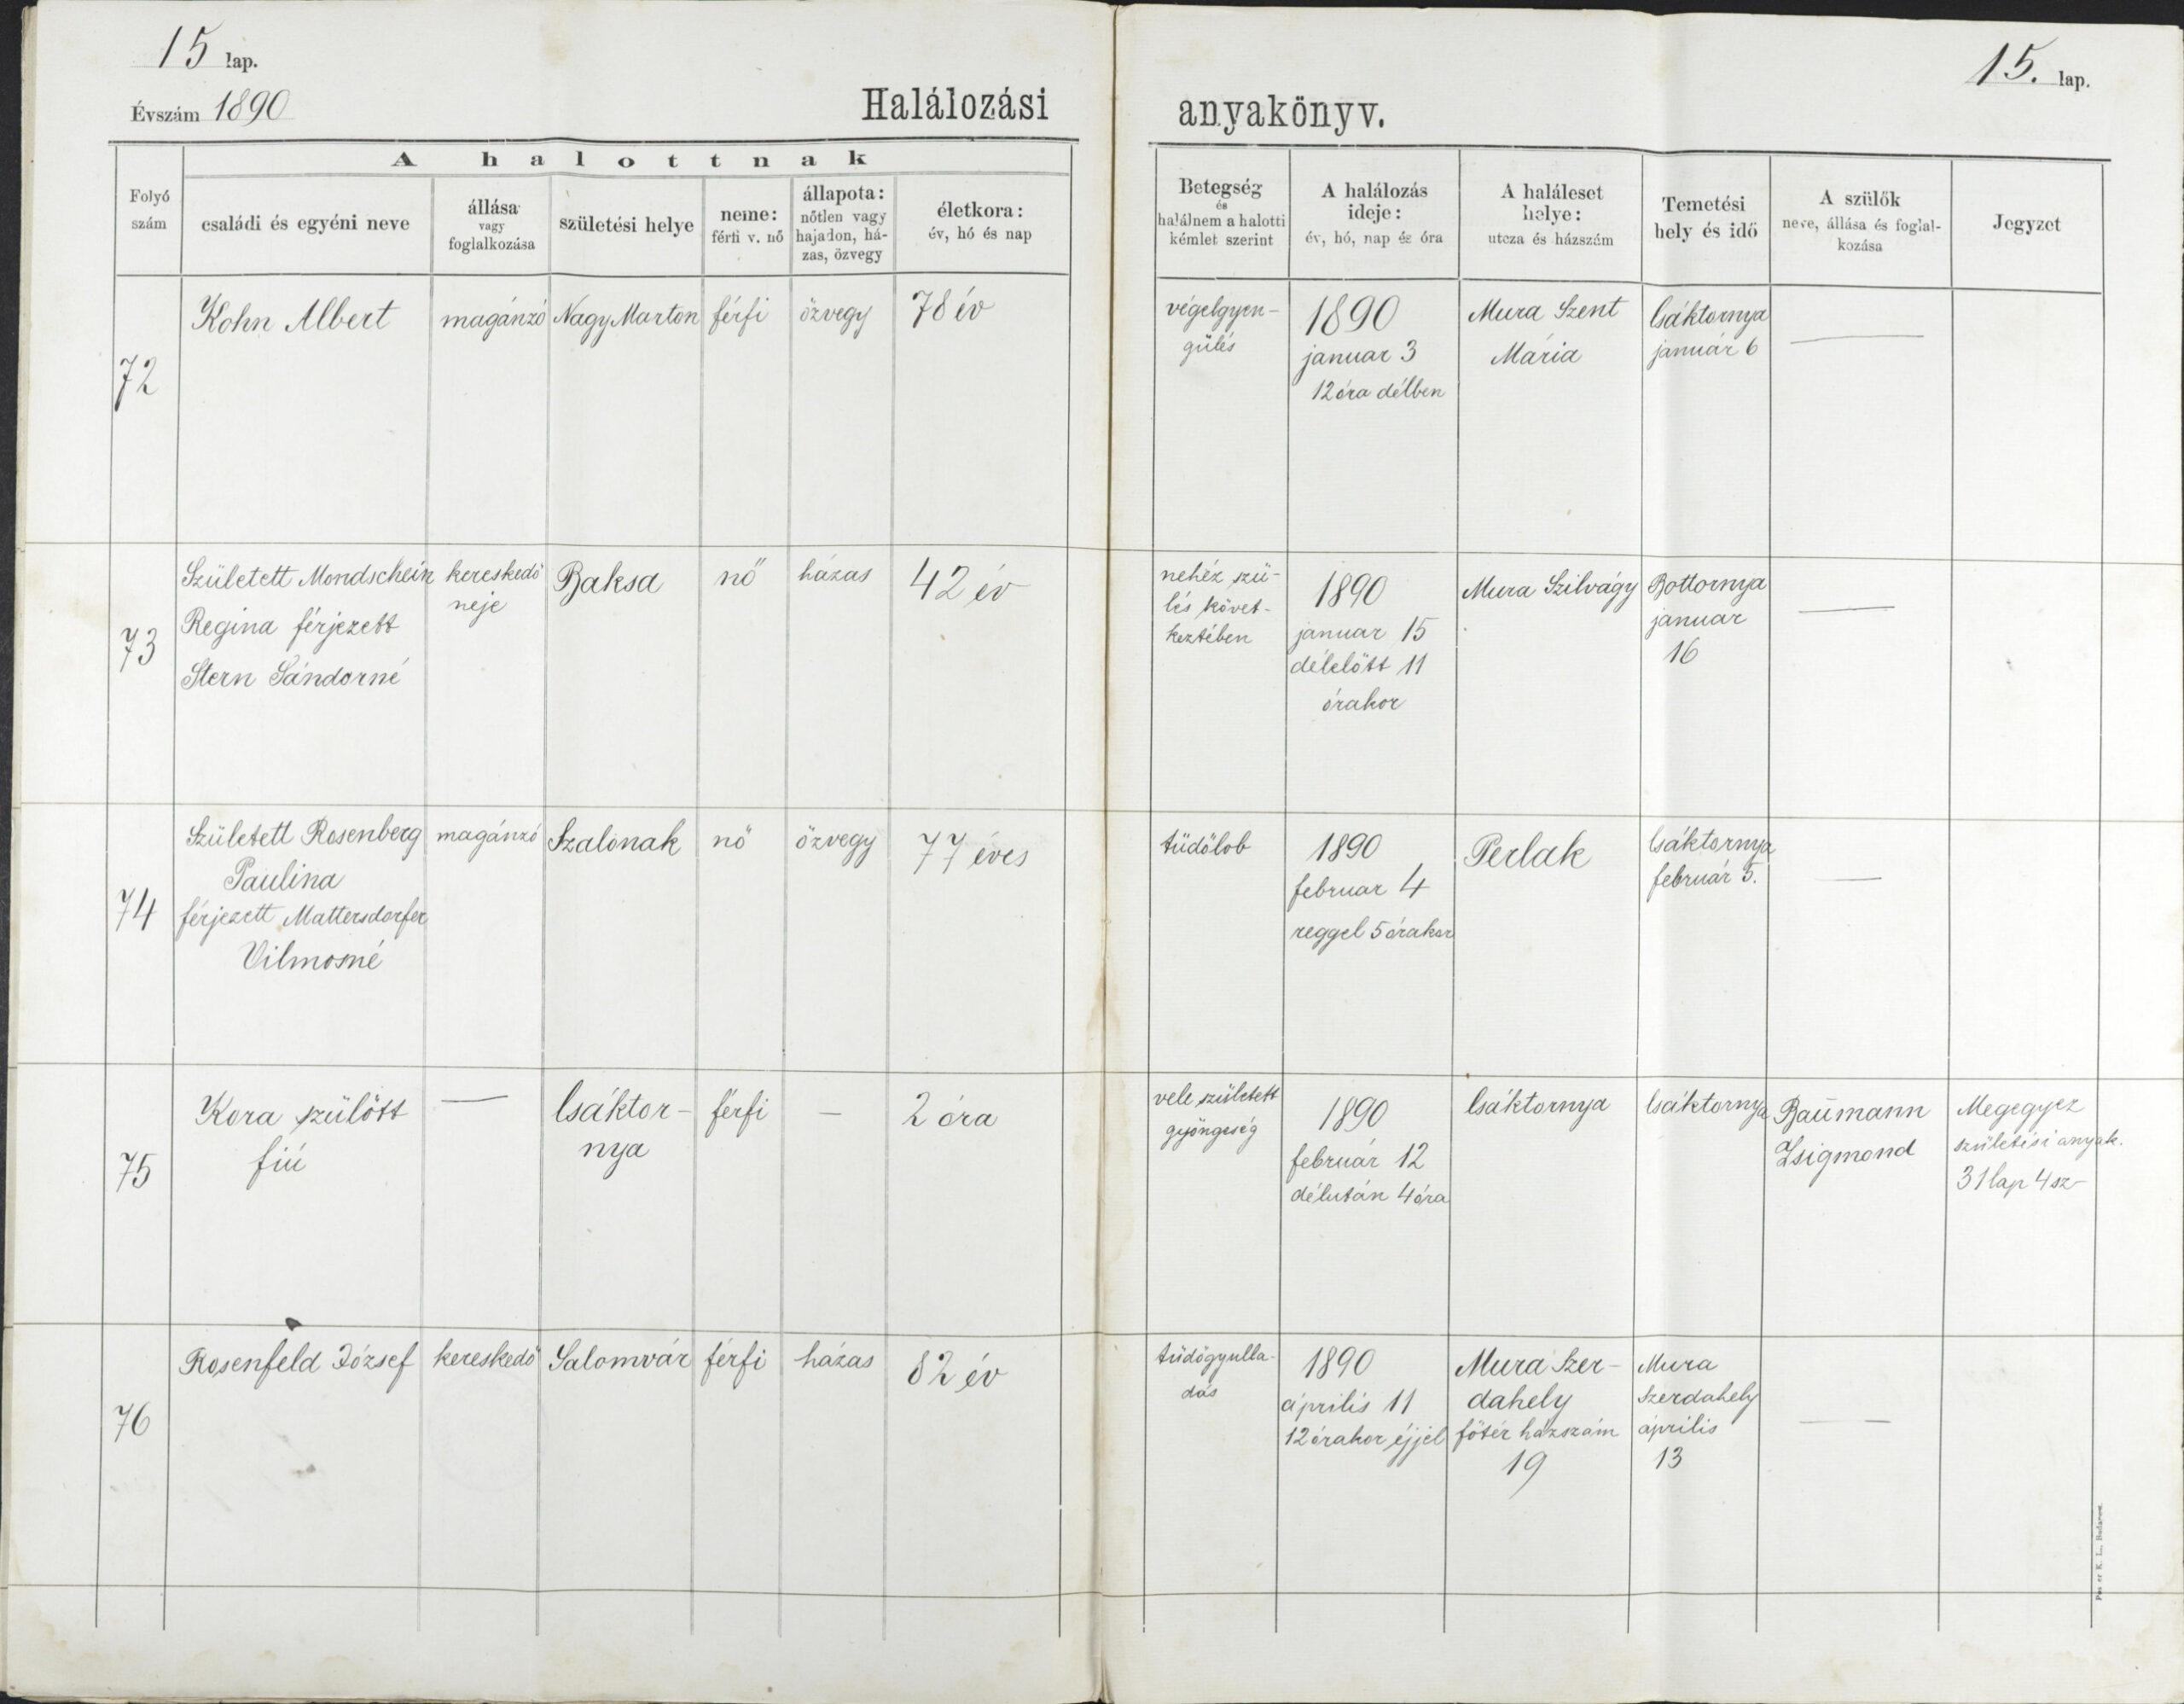 15 lap.
Évszám 1890
Halálozási
A halottnak
Folyó szám
családi és egyéni neve
állása vagy foglalkozása
születési helye
neme: férfi v. nő
állapota: nőtlen vagy hajadon, há-zas, özvegy
életkora: év, hó és nap
72
Kohn Albert
magánzó
Nagy Marton
férfi
özvegy
78 év
73
Született Mondschein
Regina férjezett
Stern Sándorné
kereskedő
neje
Baksa
nő
házas
42 év
74
Született Rosenberg
Paulina
férjezett Mattersdorfer
Vilmosné
magánzó
Szalonak
nő
özvegy
77 éves
75
Kora szülött
fiú
—
Csáktor-
nya
férfi
—
2 óra
76
Rosenfeld József
kereskedő
Salomvár
férfi
házas
82 év
15. lap.
anyakönyv.
Betegség és halálnem a halotti kémlet szerint
A halálozás ideje: év, hó, nap és óra
A haláleset helye: utcza és házszám
Temetési hely és idő
A szülők neve, állása és foglal-kozása
Jegyzet
végelgyen-
gülés
1890
januar 3
12 óra délben
Mura Szent
Mária
Csáktornya
január 6
—
nehéz szü-
lés követ-
keztében
1890
januar 15
délelőtt 11
órakor
Mura Szilvágy
Bottornya
január
16
—
tüdőlob
1890
februar 4
reggel 5 órakor
Perlak
Csáktornya
február 5.
—
vele született
gyöngeség
1890
február 12
délután 4 óra
Csáktornya
Csáktornya
Baumann
Zsigmond
Megegyez
születési anyak.
31 lap 4 sz-
tüdőgyulla-
dás
1890
április 11
12 órakor éjjel
Mura Szer-
dahely
főtér házszám
19
Mura
Szerdahely
április
13
—